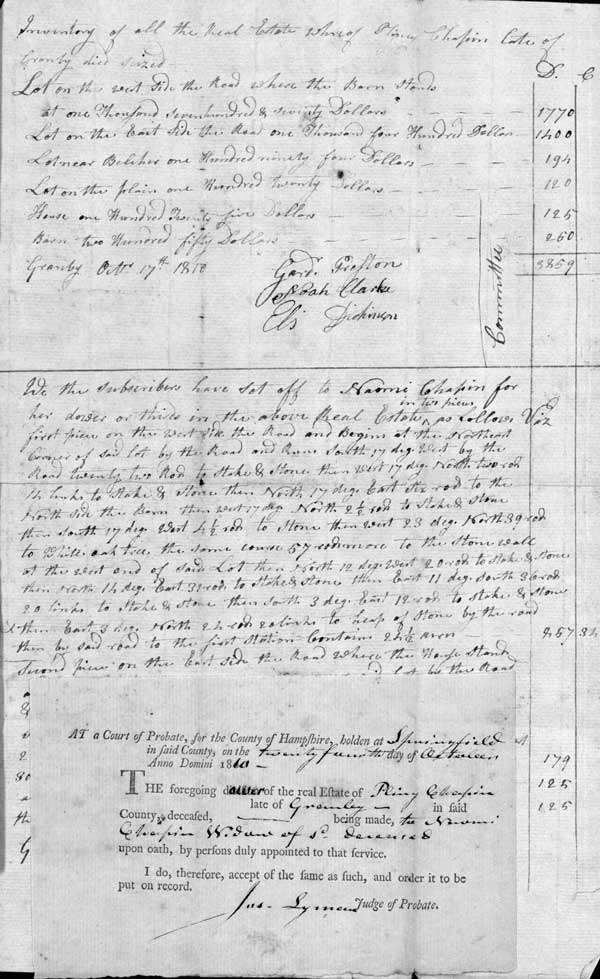 Inventory of all the Real Estate whereof Pliney Chapin late of
Granby died seized
D. C
Lot on the west side the Road where the Barn Stands
at one Thousand sevenhundred & seventy Dollars 1770
Lot on the East side the Road one Thousand four Hundred Dollars 1400
Lot near Belcher one Hundred ninety four Dollars 194
Lot on the plain one Hundred twenty Dollars 120
House one Hundred Twenty five Dollars 125
Barn two Hundred fifty Dollars 250
3859
Granby Octr 17th 1810
Gard. Preston
Noah Clarke
Eli Dickinson
Committee
We the subscribers have set off to Naomi Chapin for
her dower or thirds in the above Real Estate in two pieces as follows Viz
first piece on the west side the Road and Begins at the Northeast
Corner of said lot by the Road and Runs South 17 deg. west by the
Road twenty two Rod to Stake & Stone then west 17 deg. North two rod
14 links to Stake & Stone then North 17 deg. East six rod to the
North side the Barn then west 17 deg. North 2½ rod to Stake & Stone
then South 17 deg. west 4½ rod to Stone then west 23 deg. North 39 rod
to White oak tree, the same course 57 rod more to the Stone wall
at the west end of said Lot then North 12 deg. west 20 rod to Stake & Stone
then North 14 deg. East 31 rod to Stake & Stone then East 11 deg. South 36 rod
20 links to Stake & Stone then South 3 deg. East 12 rod to Stake & Stone
then East 3 deg. North 24 rod 20 links to heap of Stone by the road
then by said road to the first Station Contains 24½ acres 457 34
Second piece on the East side the Road where the House Stands
lot by the Road
AT a Court of Probate, for the County of Hampshire, holden at Springfield
in said County, on the twenty fourth day of October
Anno Domini 1810
179
THE foregoing dower of the real Estate of Pliny Chapin 125
late of Granby in said 125
County, deceased, being made, to Naomi
Chapin Widow of sd. deceased
upon oath, by persons duly appointed to that service.
I do, therefore, accept of the same as such, and order it to be
put on record.
Jos. Lyman Judge of Probate.